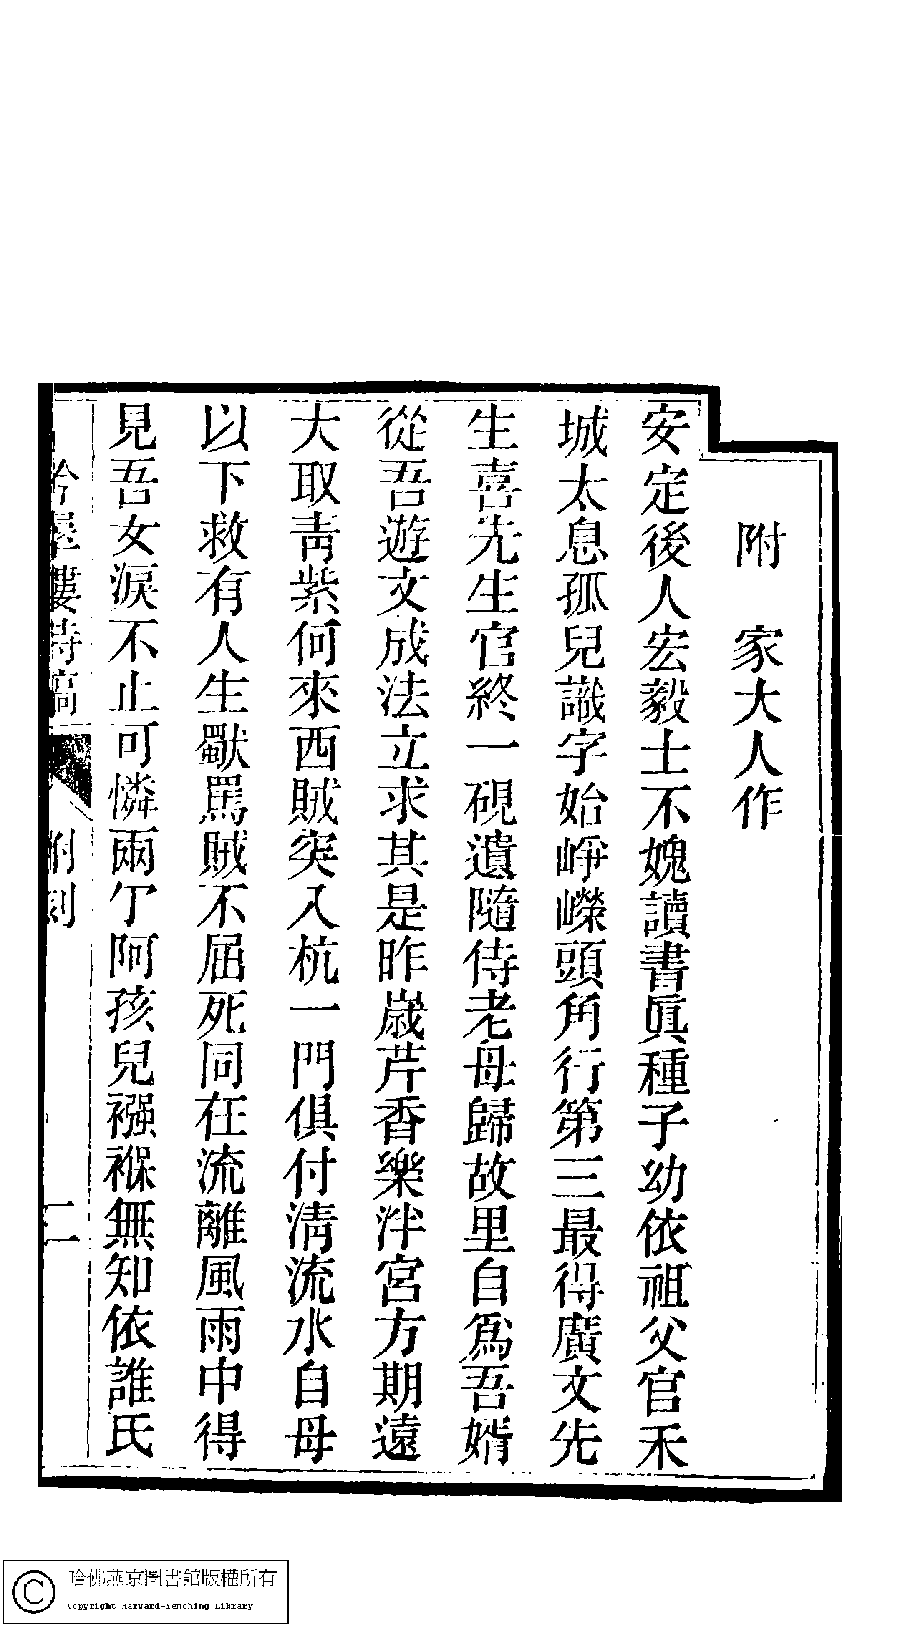 附　家大人作
安定後人宏毅士不媿讀書眞種子幼依祖父官禾
城太息孤兒識字始崢嶸頭角行第三最得廣文先
生喜先生官終一硯遺隨侍老母歸故里自爲吾婿
從吾遊文成法立求其是昨歲芹香樂泮宮方期遠
大取靑紫何來西賊突入杭一門俱付淸流水自母
以下救有人生獸罵賊不屈死同在流離風雨中得
見吾女淚不止可憐兩亇阿孩兒襁褓無知依誰氏
樓詩稿　附刻　二
哈佛燕京圖書館版權所有
Copyright Harvard-Yenching Library